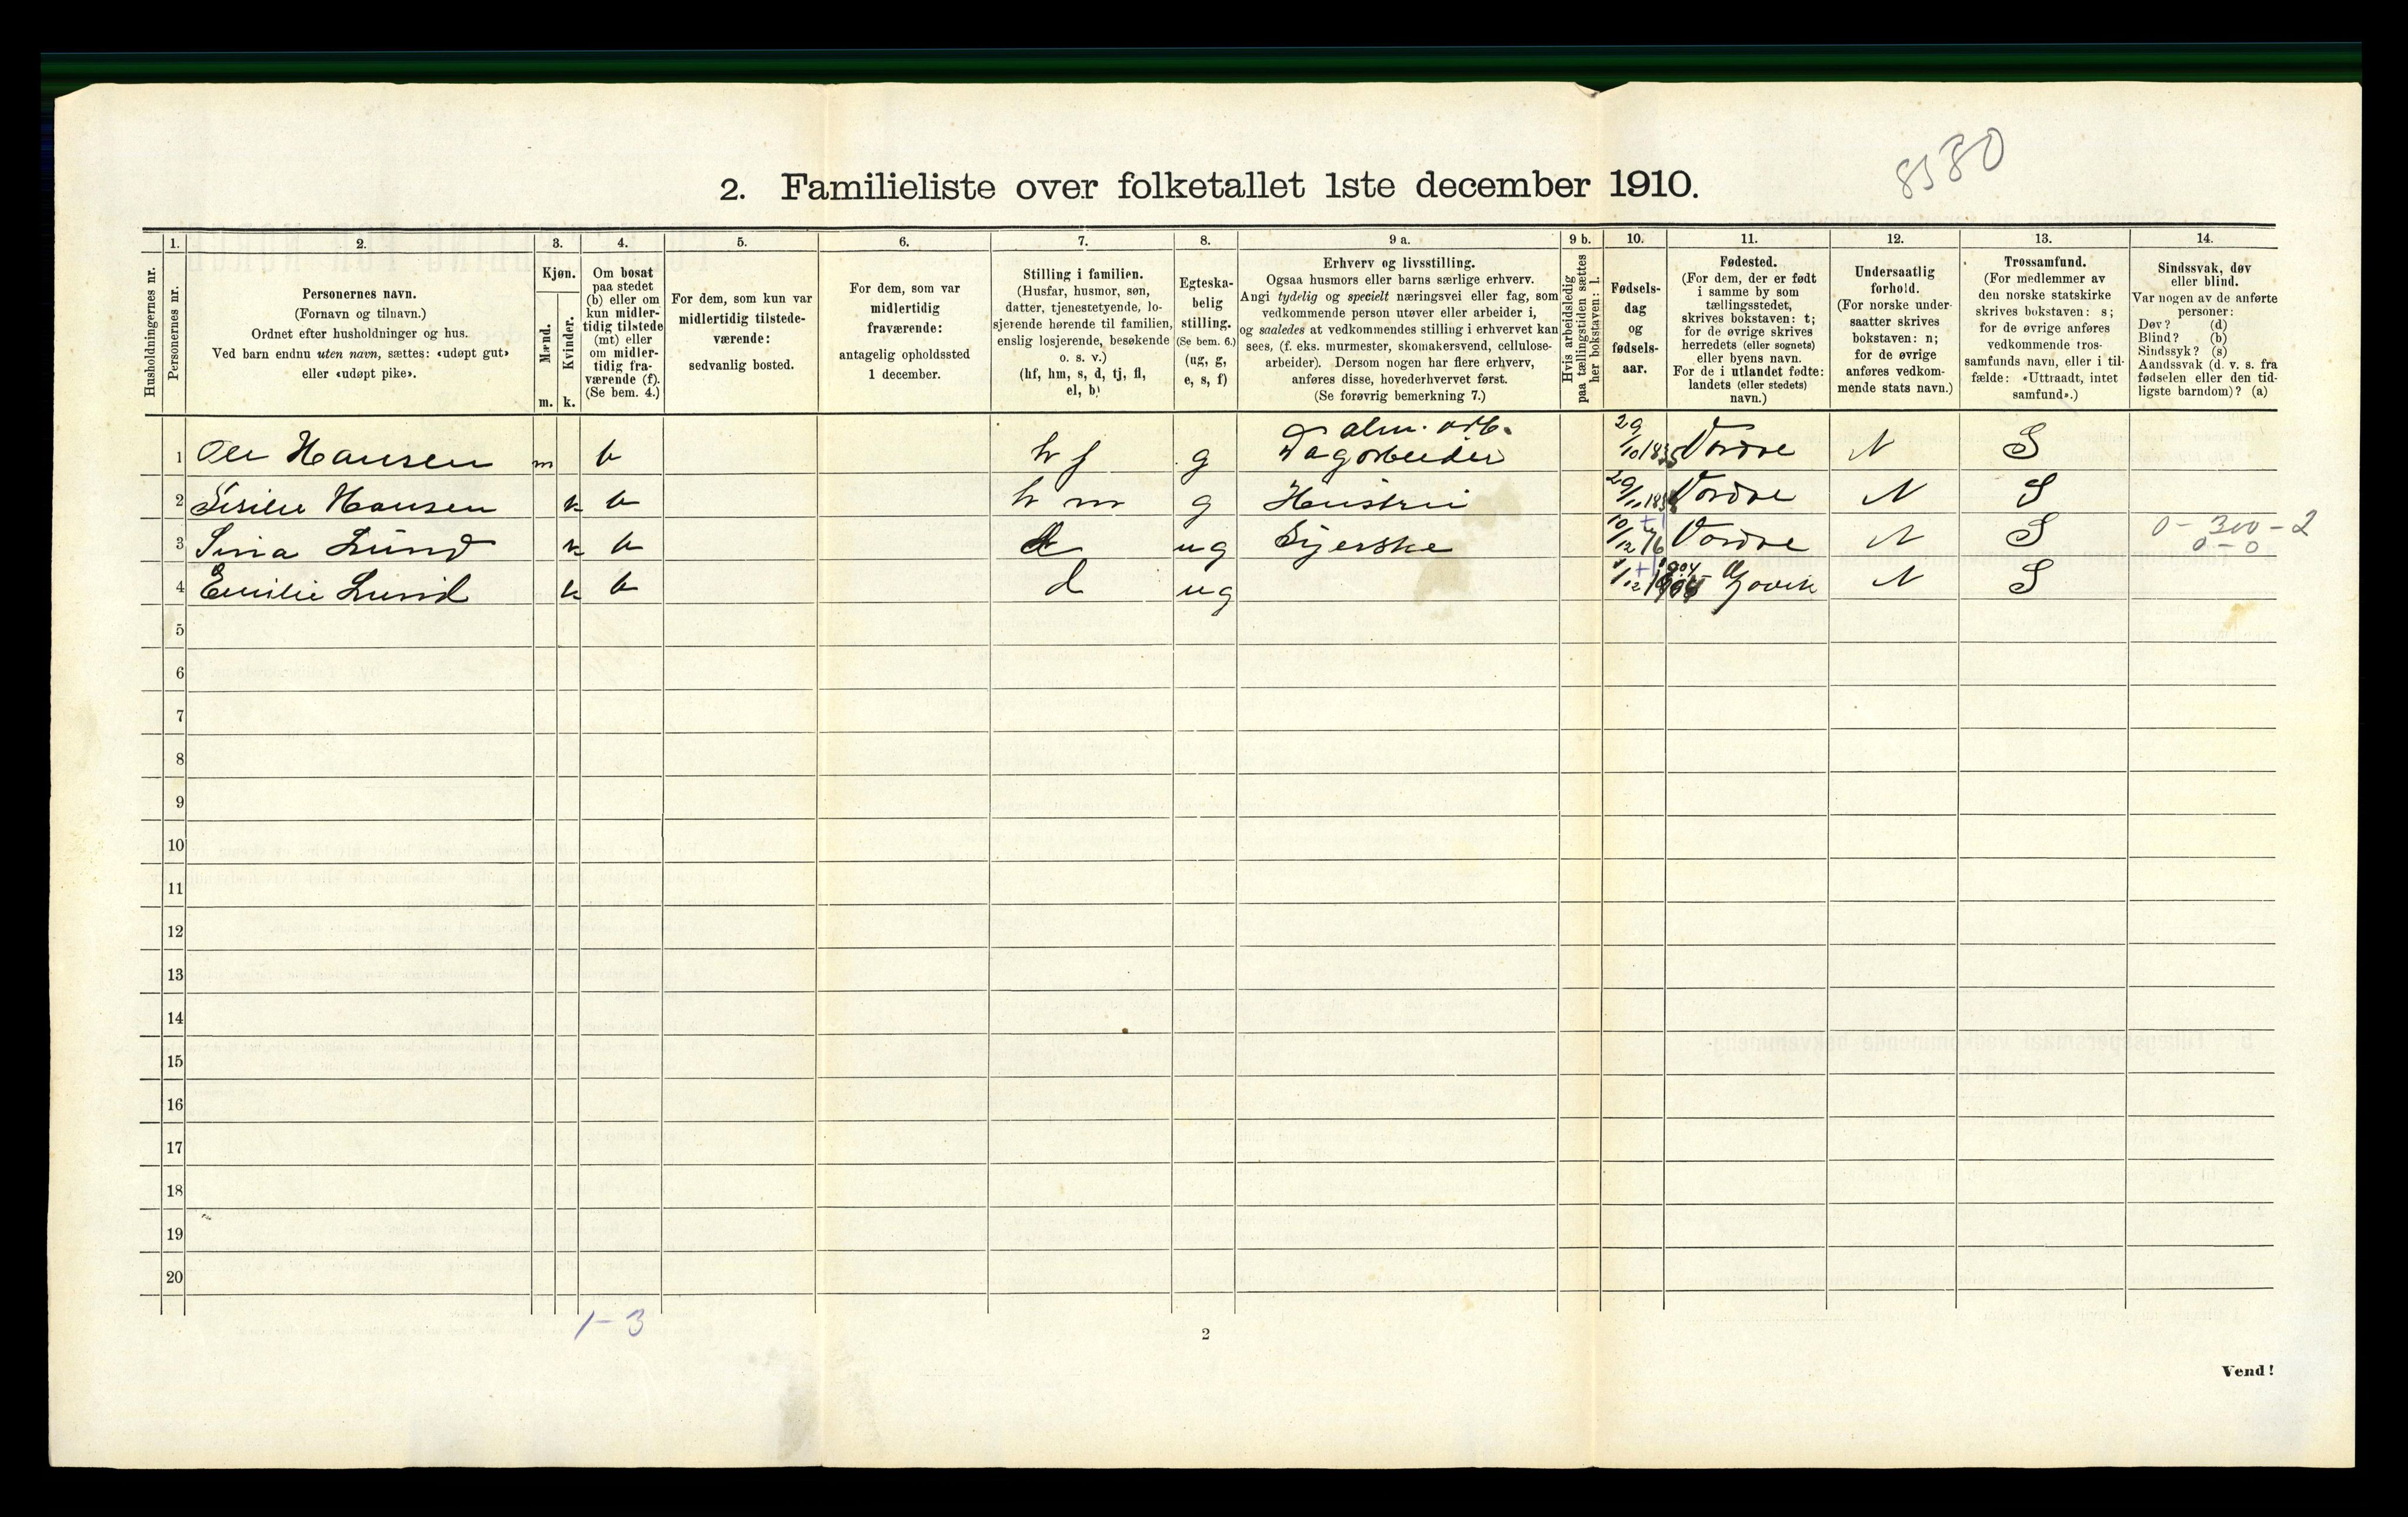 8580
2. Familieliste over folketallet 1ste december 1910.
Husholdningernes nr.
1. Personernes nr.
2. Personernes navn.
(Fornavn og tilnavn.)
Ordnet efter husholdninger og hus.
Ved barn endnu uten navn, sættes: «udøpt gut»
eller «udøpt pike».
3. Kjøn.
Mænd. m.
Kvinder. k.
4. Om bosat
paa stedet
(b) eller om
kun midler-
tidig tilstede
(mt) eller
om midler-
tidig fra-
værende (f).
(Se bem. 4.)
5. For dem, som kun var
midlertidig tilstede-
værende:
sedvanlig bosted.
6. For dem, som var
midlertidig
fraværende:
antagelig opholdssted
1 december.
7. Stilling i familien.
(Husfar, husmor, søn,
datter, tjenestetyende, lo-
sjerende hørende til familien,
enslig losjerende, besøkende
o. s. v.)
(hf, hm, s, d, tj, fl,
el, b)
8. Egteska-
belig
stilling.
(Se bem. 6.)
(ug, g,
e, s, f)
9 a. Erhverv og livsstilling.
Ogsaa husmors eller barns særlige erhverv.
Angi tydelig og specielt næringsvei eller fag, som
vedkommende person utøver eller arbeider i,
og saaledes at vedkommendes stilling i erhvervet kan
sees, (f. eks. murmester, skomakersvend, cellulose-
arbeider). Dersom nogen har flere erhverv,
anføres disse, hovederhvervet først.
(Se forøvrig bemerkning 7.)
9 b. Hvis arbeidsledig
paa tællingstiden sættes
her bokstaven: l.
10. Fødsels-
dag
og
fødsels-
aar.
11. Fødested.
(For dem, der er født
i samme by som
tællingsstedet,
skrives bokstaven: t;
for de øvrige skrives
herredets (eller sognets)
eller byens navn.
For de i utlandet fødte:
landets (eller stedets)
navn.)
12. Undersaatlig
forhold.
(For norske under-
saatter skrives
bokstaven: n;
for de øvrige
anføres vedkom-
mende stats navn.)
13. Trossamfund.
(For medlemmer av
den norske statskirke
skrives bokstaven: s;
for de øvrige anføres
vedkommende tros-
samfunds navn, eller i til-
fælde: «Uttraadt, intet
samfund».)
14. Sindssvak, døv
eller blind.
Var nogen av de anførte
personer:
Døv? (d)
Blind? (b)
Sindssyk? (s)
Aandssvak (d. v. s. fra
fødselen eller den tid-
ligste barndom)? (a)
alm. arb.
1 Ole Hansen m b h f g Dagarbeider 29/10 Vardre N S
2 Hansen k b h m g Hustru 29/11 Vardre N S
3 Sina Lund k b d ug Syerske 10/12 76 Vardre N S 0-300-2
0-0
4 Emilie Lund k b d ug 1/12 1904 Gjøvik N S
5
6
7
8
9
10
11
12
13
14
15
16
17
18
19
20
1-3
2
Vend!